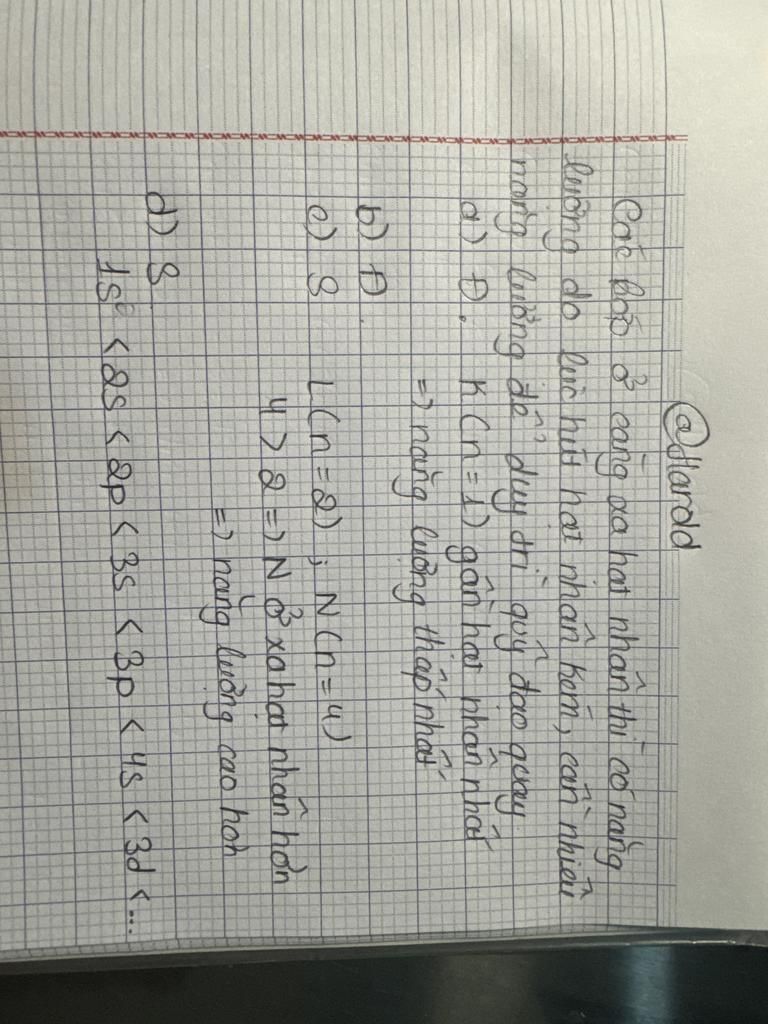 @Hardd
Các lớp ở càng xa hạt nhân thì có năng
lượng do lực hút hạt nhân kém, cần nhiều
năng lượng để duy trì quỹ đạo quay
a) Đ. K(n=1) gần hạt nhân nhất
=> năng lượng thấp nhất
b) Đ.
c) S L(n=2); N(n=4)
4 > 2 => N ở xa hạt nhân hơn
=> năng lượng cao hơn
d) S
1s < 2s < 2p < 3s < 3p < 4s < 3d <...